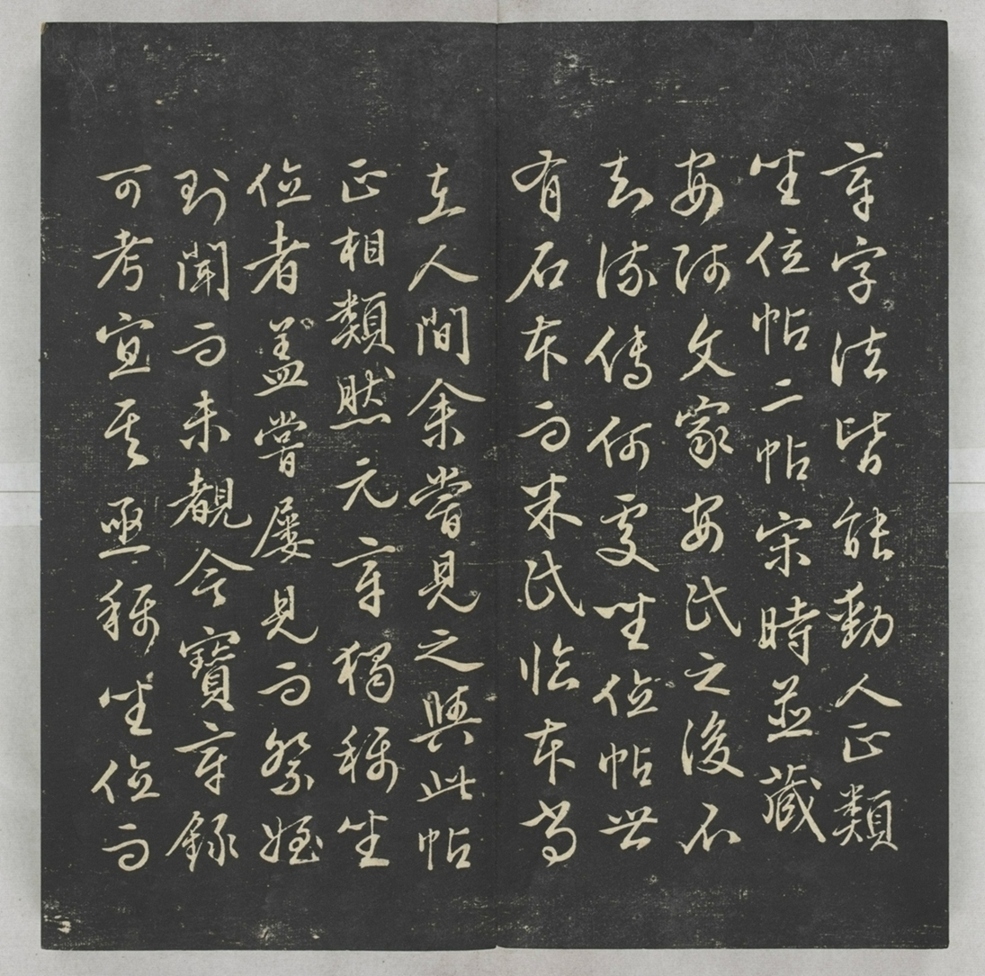 章字法皆能動人正類
坐位帖二帖宋時並藏
安師文家安氏之後不
知流傳何處坐位帖世
有石本而米氏臨本尚
在人間余嘗見之與此帖
正相類然元章獨稱坐
位者盖嘗屢見而祭姪
則聞而未覩今寶章錄
可考宜其亟稱坐位而